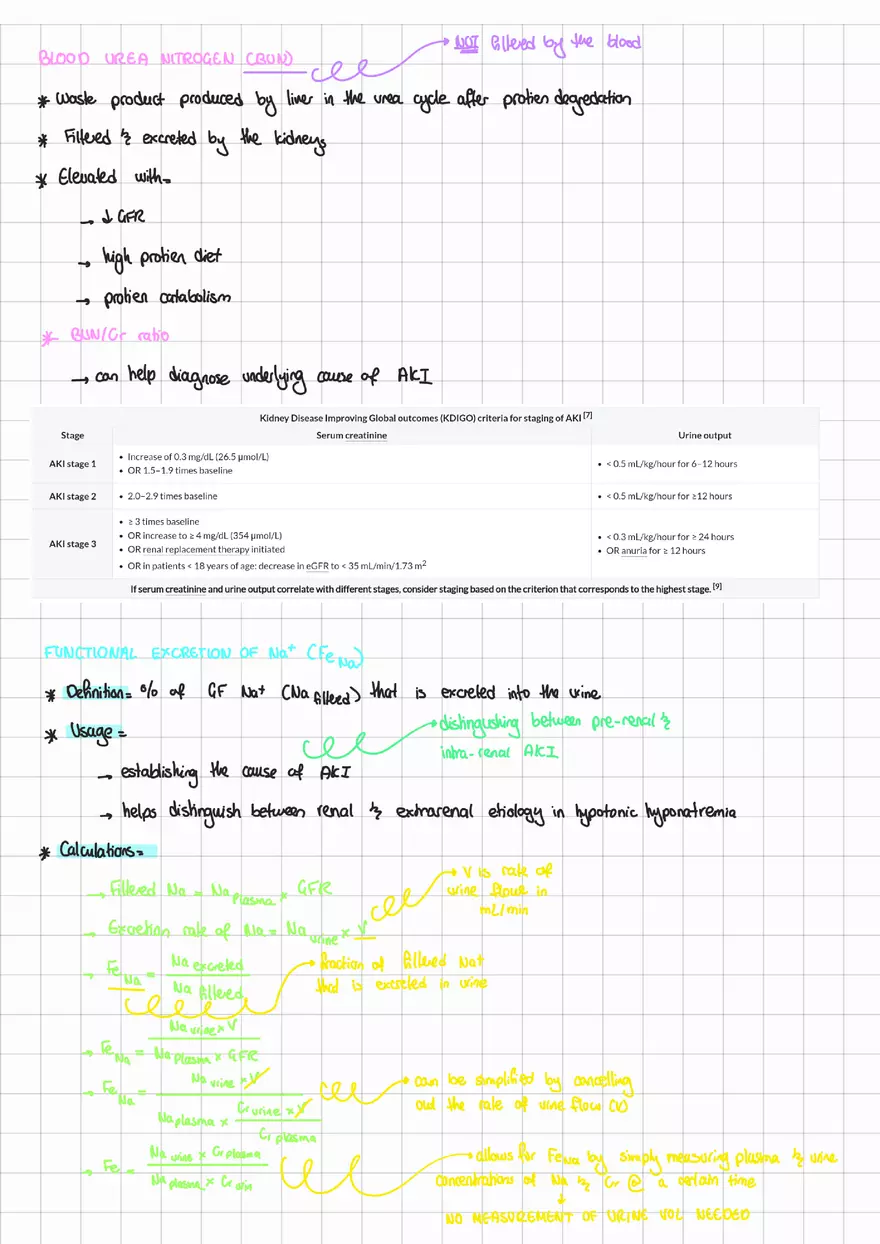 NOT filtered by the blood
BLOOD UREA NITROGEN (BUN)
* Waste product produced by liver in the urea cycle after protien degredation
* Filtered & excreted by the kidneys
* Elevated with=
→ ↓ GFR
→ high protien diet
→ protien catabolism
* BUN/Cr ratio
→ can help diagnose underlying cause of AKI
Kidney Disease Improving Global outcomes (KDIGO) criteria for staging of AKI [7]
Stage Serum creatinine Urine output
AKI stage 1
• Increase of 0.3 mg/dL (26.5 μmol/L)
• OR 1.5–1.9 times baseline
• < 0.5 mL/kg/hour for 6–12 hours
AKI stage 2 • 2.0–2.9 times baseline • < 0.5 mL/kg/hour for ≥12 hours
AKI stage 3
• ≥ 3 times baseline
• OR increase to ≥ 4 mg/dL (354 μmol/L)
• OR renal replacement therapy initiated
• OR in patients < 18 years of age: decrease in eGFR to < 35 mL/min/1.73 m²
• < 0.3 mL/kg/hour for ≥ 24 hours
• OR anuria for ≥ 12 hours
If serum creatinine and urine output correlate with different stages, consider staging based on the criterion that corresponds to the highest stage. [9]
FUNCTIONAL EXCRETION OF Na⁺ (Fe Na)
* Definition= % of GF Na⁺ (Na filtered) that is excreted into the urine
* Usage=
distingushing between pre-renal &
intra-renal AKI
→ establishing the cause of AKI
→ helps distinguish between renal & extrarenal etiology in hypotonic hyponatremia
* Calculations=
→ Filtered Na = Na plasma × GFR
→ V is rate of
urine flow in
mL/min
→ Excretion rate of Na = Na urine × V
→ Fe Na = Na excreted / Na filtered
→ fraction of filtered Na+
that is excreted in urine
→ Fe Na = Na urine × V / Na plasma × GFR
→ Fe Na = Na urine × V / Na plasma × Cr urine × V / Cr plasma
→ can be simplified by cancelling
out the rate of urine flow (V)
→ Fe = Na urine × Cr plasma / Na plasma × Cr urin
→ allows for Fe Na by simply measuring plasma & urine
concentrations of Na & Cr @ a certain time
↓
NO MEASUREMENT OF URINE VOL NEEDED